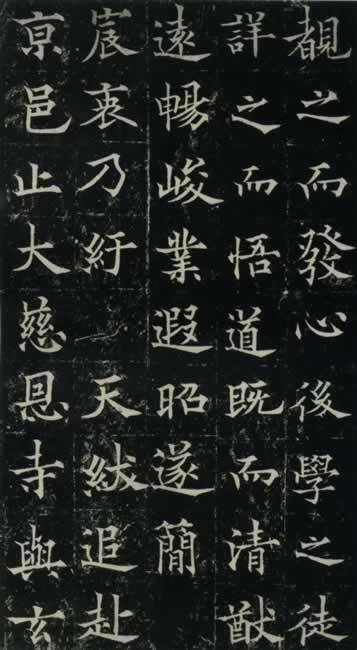 覩之而發心後學之徒
詳之而悟道既而清猷
遠暢峻業遐昭遂簡
宸衷乃紆 天紱追赴
亰邑止大慈恩寺與玄